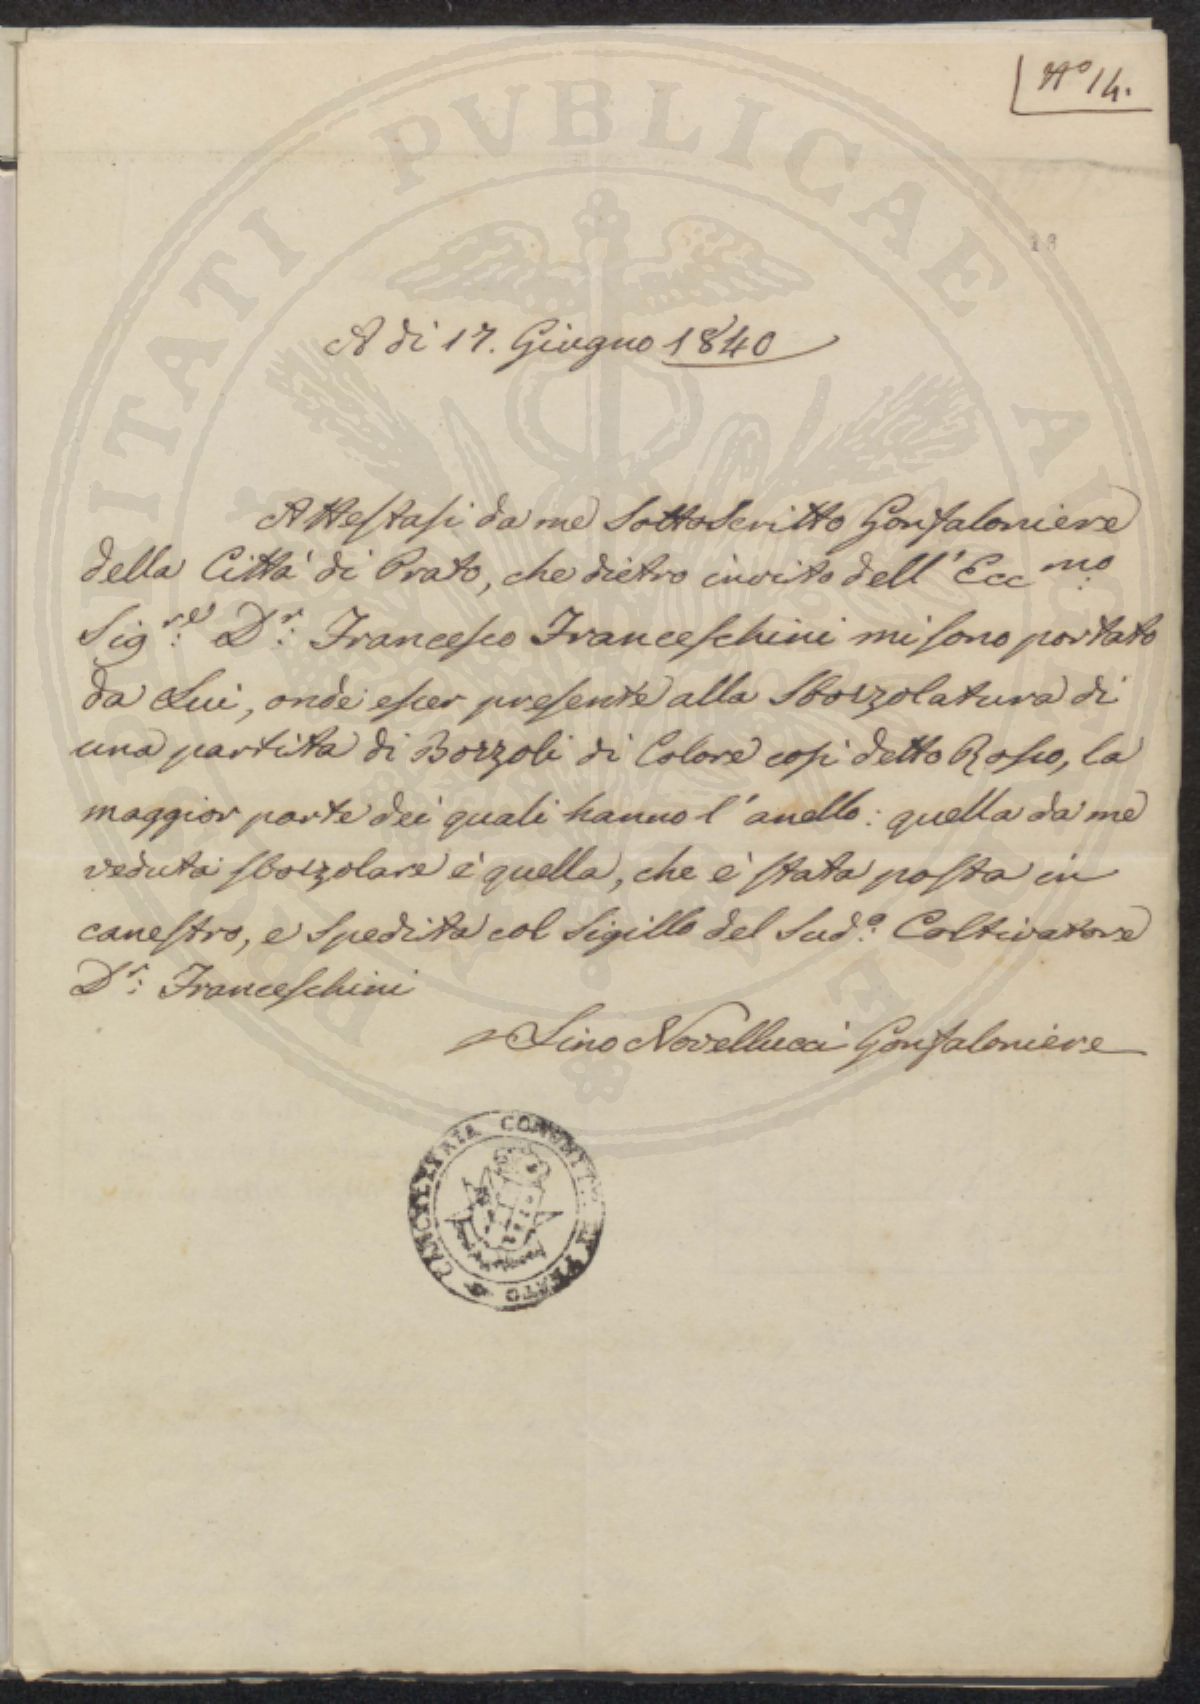 N° 14.
18
A di 17. Giugno 1840
Attestasi da me Sottoscritto Gonfaloniere
della Città di Prato, che dietro invito dell'Ecc.mo
Sig.re Dr. Francesco Franceschini mi sono portato
da Lui, onde esser presente alla Sbozzolatura di
una partita di Bozzoli di Colore così detto Rosso, la
maggior parte dei quali hanno l'anello: quella da me
veduta sbozzolare è quella, che è stata posta in
canestro, e Spedita col Sigillo del Sud.o Coltivatore
Dr. Franceschini
Lino Novellucci Gonfaloniere
CANCELLERIA COMUNIT. DI PRATO
PROSPERITATI PVBLICAE AVGENDAE